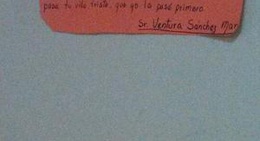 pasa tu vida triste, que yo la pasé primero.
Sr. Ventura Sánchez Mar